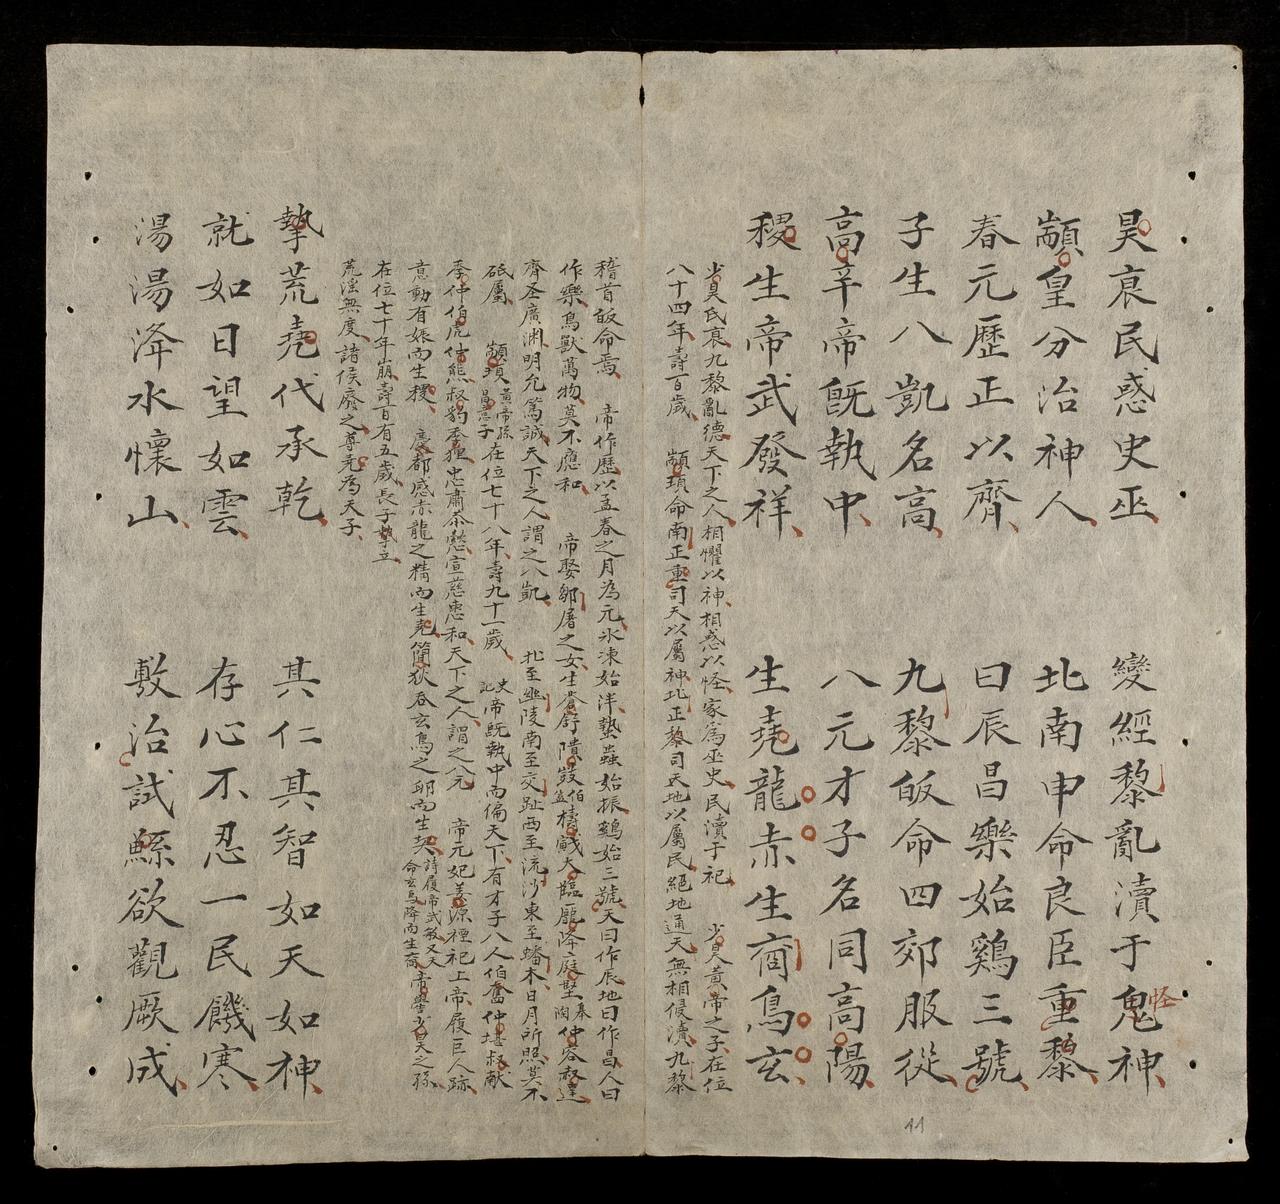 昊衰民惑史巫 變經黎亂瀆于鬼神
怪
顓皇分治神人 北南申命良臣重黎
春元歷正以齊 曰辰昌樂始鷄三號
子生八凱名高 九黎皈命四郊服從
高辛帝旣執中 八元才子名同高陽
稷生帝武發祥 生堯龍赤生商鳥玄
少昊氏衰九黎亂德天下之人相懼以神相惑以怪家爲巫史民瀆于祀 少昊黃帝之子在位
八十四年壽百歲 顓頊命南正重司天以屬神北正黎司天地以屬民絕地通天無相侵瀆九黎
稽首皈命焉 帝作歷以孟春之月為元氷凍始泮蟄蟲始振鷄始三號天曰作辰地曰作昌人曰
作樂鳥獸萬物莫不應和 帝娶鄒屠之女生蒼舒隤敱伯益檮戭大臨龎降庭堅秦陶仲容叔達
齊圣廣淵明允篤誠天下之人謂之八凱 北至幽陵南至交趾西至流沙東至蟠木日月所照莫不
砥屬 顓頊黃帝孫昌意子在位七十八年壽九十一歲 史記帝旣執中而偏天下有才子八人伯奮仲堪叔献
季仲伯虎仲熊叔豹季貍忠肅恭懿宣慈惠和天下之人謂之八元 帝元妃姜源禋祀上帝履巨人跡
意動有娠而生稷 慶都感赤龍之精而生堯簡狄吞玄鳥之卵而生契詩履帝武敏又天命玄鳥降而生商帝嚳少昊之孫
在位七十年崩壽百有五歲長子摯立
荒淫無度諸侯廢之尊堯為天子
摯荒堯代承乾 其仁其智如天如神
就如日望如雲 存心不忍一民饑寒
湯湯洚水懷山 敷治試鯀欲觀厥成
11